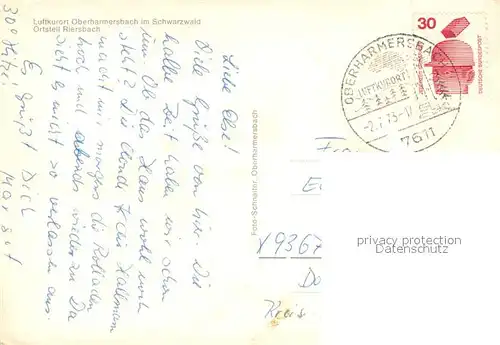 Luftkurort Oberharmersbach im Schwarzwald
Ortsteil Riersbach
Liebe Else!
Viele Grüße von hier. Die
halbe Zeit haben wir schon
um. Ob das Haus wohl noch
steht? Die Frau Hallmann
macht mir morgens die Rolladen
hoch und abends wieder zu. Da
sieht es nicht so verlassen aus.
Es grüßt Dich
Margot
30° Hitze!
Foto-Schnaiter, Oberharmersbach
30
DEUTSCHE BUNDESPOST
OBERHARMERSBACH
LUFTKURORT
-2.7.75-17
7611
V 9367
Kreis
privacy protection
Datenschutz